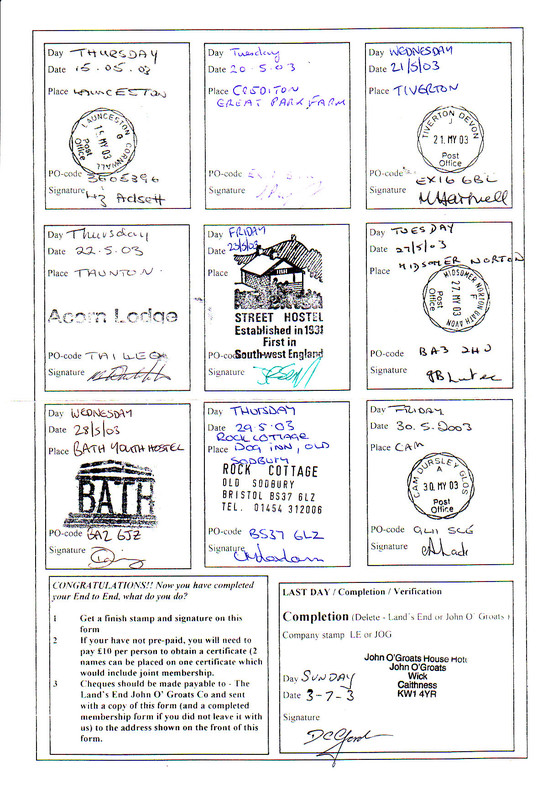 Day THURSDAY
Date 15.05.03
Place LAUNCESTON
LAUNCESTON
G
15 MY 03
Post
Office
CORNWALL
PO-code
Signature Adsett
Day Tuesday
Date 20-5-03
Place CREDITON
GREAT PARK FARM
PO-code
Signature
Day WEDNESDAY
Date 21/5/03
Place TIVERTON
TIVERTON DEVON
J
21 MY 03
Post
Office
PO-code EX16 6BL
Signature
Day Thursday
Date 22.5.03
Place TAUNTON
Acorn Lodge
PO-code
Signature
Day FRIDAY
Date 23/5/03
Place
STREET HOSTEL
Established in 1931
First in
Southwest England
PO-code
Signature
Day TUESDAY
Date 27/5/03
Place MIDSOMER NORTON
MIDSOMER NORTON BATH AVON
F
27 MY 03
Post
Office
PO-code BA3 2HJ
Signature
Day WEDNESDAY
Date 28/5/03
Place BATH YOUTH HOSTEL
BATH
PO-code BA2 6JZ
Signature
Day THURSDAY
Date 29.5.03
ROCK COTTAGE
Place DOG INN, OLD
SODBURY
ROCK COTTAGE
OLD SODBURY
BRISTOL BS37 6LZ
TEL. 01454 312006
PO-code BS37 6LZ
Signature
Day FRIDAY
Date 30.5.2003
Place CAM
CAM DURSLEY GLOS
A
30 MY 03
Post
Office
PO-code GL11 5LG
Signature
CONGRATULATIONS!! Now you have completed
your End to End, what do you do?
1 Get a finish stamp and signature on this
form
2 If your have not pre-paid, you will need to
pay £10 per person to obtain a certificate (2
names can be placed on one certificate which
would include joint membership.
3 Cheques should be made payable to - The
Land's End John O' Groats Co and sent
with a copy of this form (and a completed
membership form if you did not leave it with
us) to the address shown on the front of this
form.
LAST DAY / Completion / Verification
Completion (Delete - Land's End or John O' Groats )
Company stamp LE or JOG
John O'Groats House Hot
John O'Groats
Wick
Caithness
KW1 4YR
Day SUNDAY
Date 3-7-3
Signature